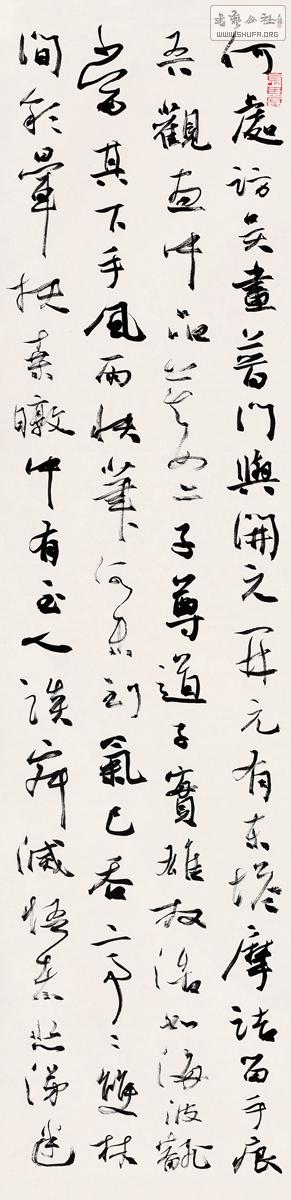 書藝公社
WWW.SHUFA.ORG
何處訪吳畫普門與開元開元有東塔摩詰留手痕
吾觀畫中品莫如二子尊道子實雄放浩如海波翻
當其下手風雨快筆所未到氣已吞亭々雙林
間彩暈扶桑暾中有至人談寂滅悟者悲涕迷